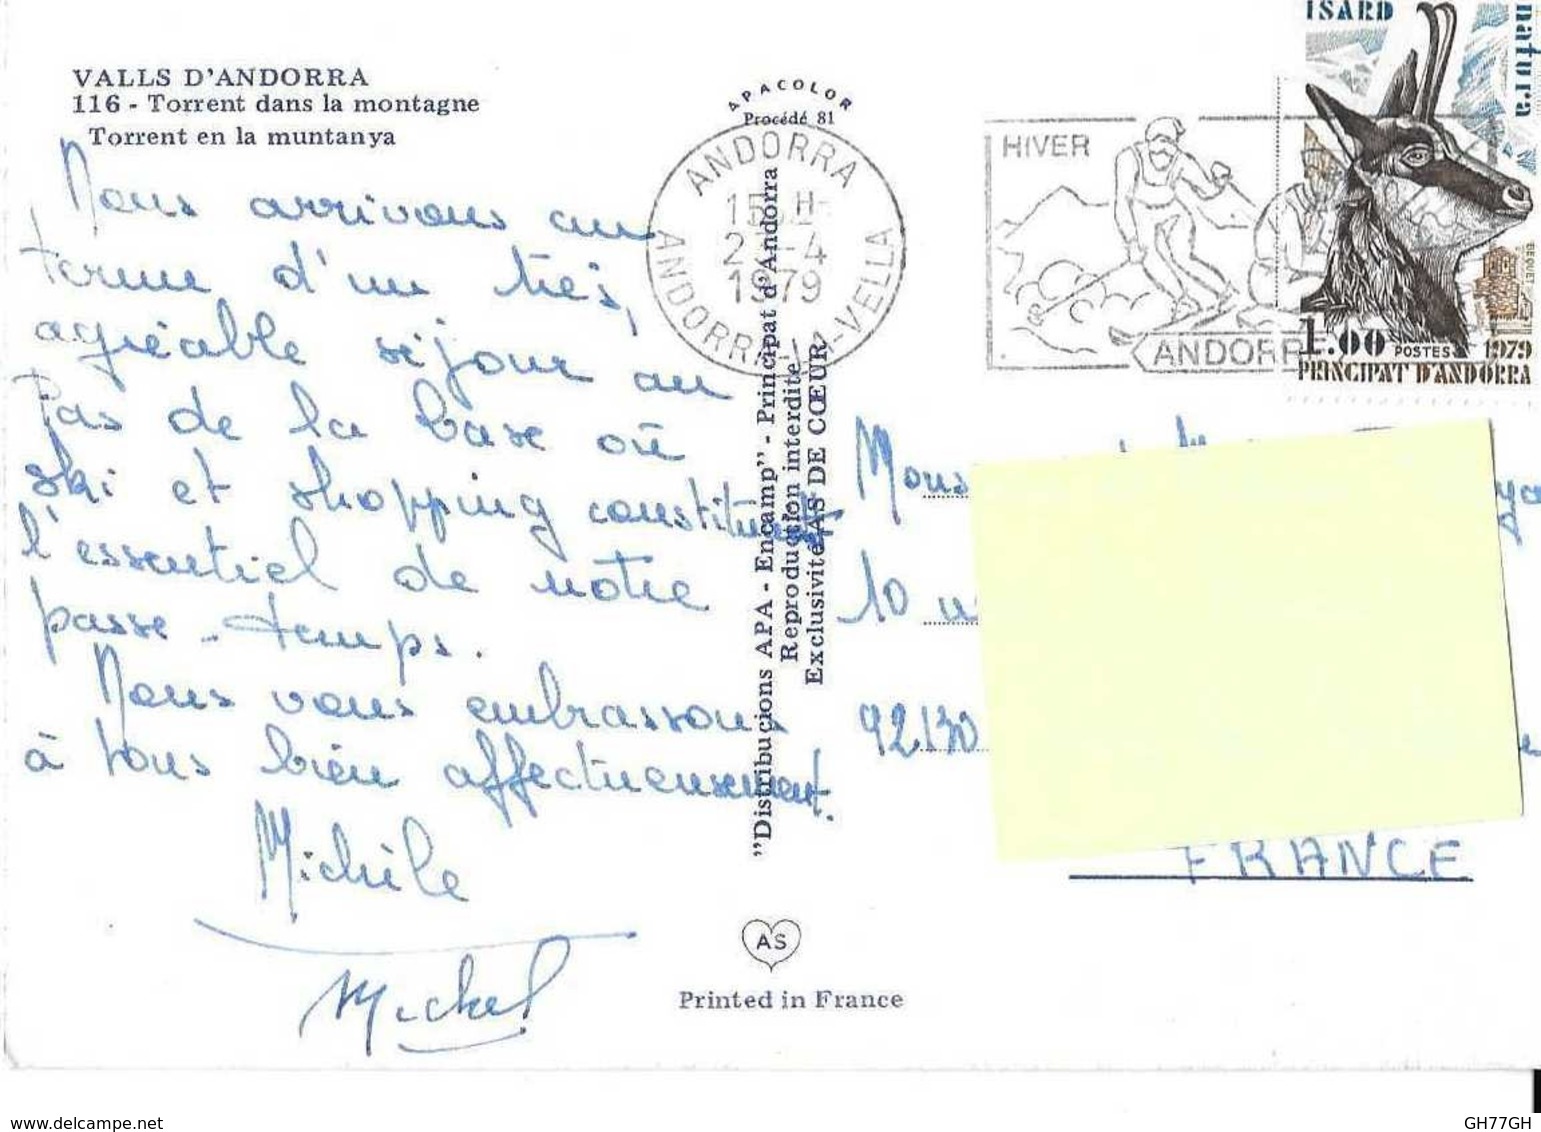 VALLS D'ANDORRA
116 - Torrent dans la montagne
Torrent en la muntanya
Nous arrivons au
terme d'un très,
agréable séjour au
Pas de la Case où
ski et shopping constituent
l'essentiel de notre
passe-temps.
Nous vous embrassons
à tous bien affectueusement.
Michèle
Michel
APACOLOR
Procédé 81
ANDORRA
15 H
2 -4
1979
ANDORRA-LA-VELLA
"Distribucions APA - Encamp" - Principat d'Andorra
Reproduction interdite
Exclusivité AS DE CŒUR
AS
Printed in France
HIVER
ANDORRE
ISARD
natura
1.00 POSTES 1979
PRINCIPAT D'ANDORRA
BEQUET
Mons
10
92130
FRANCE
www.delcampe.net
GH77GH